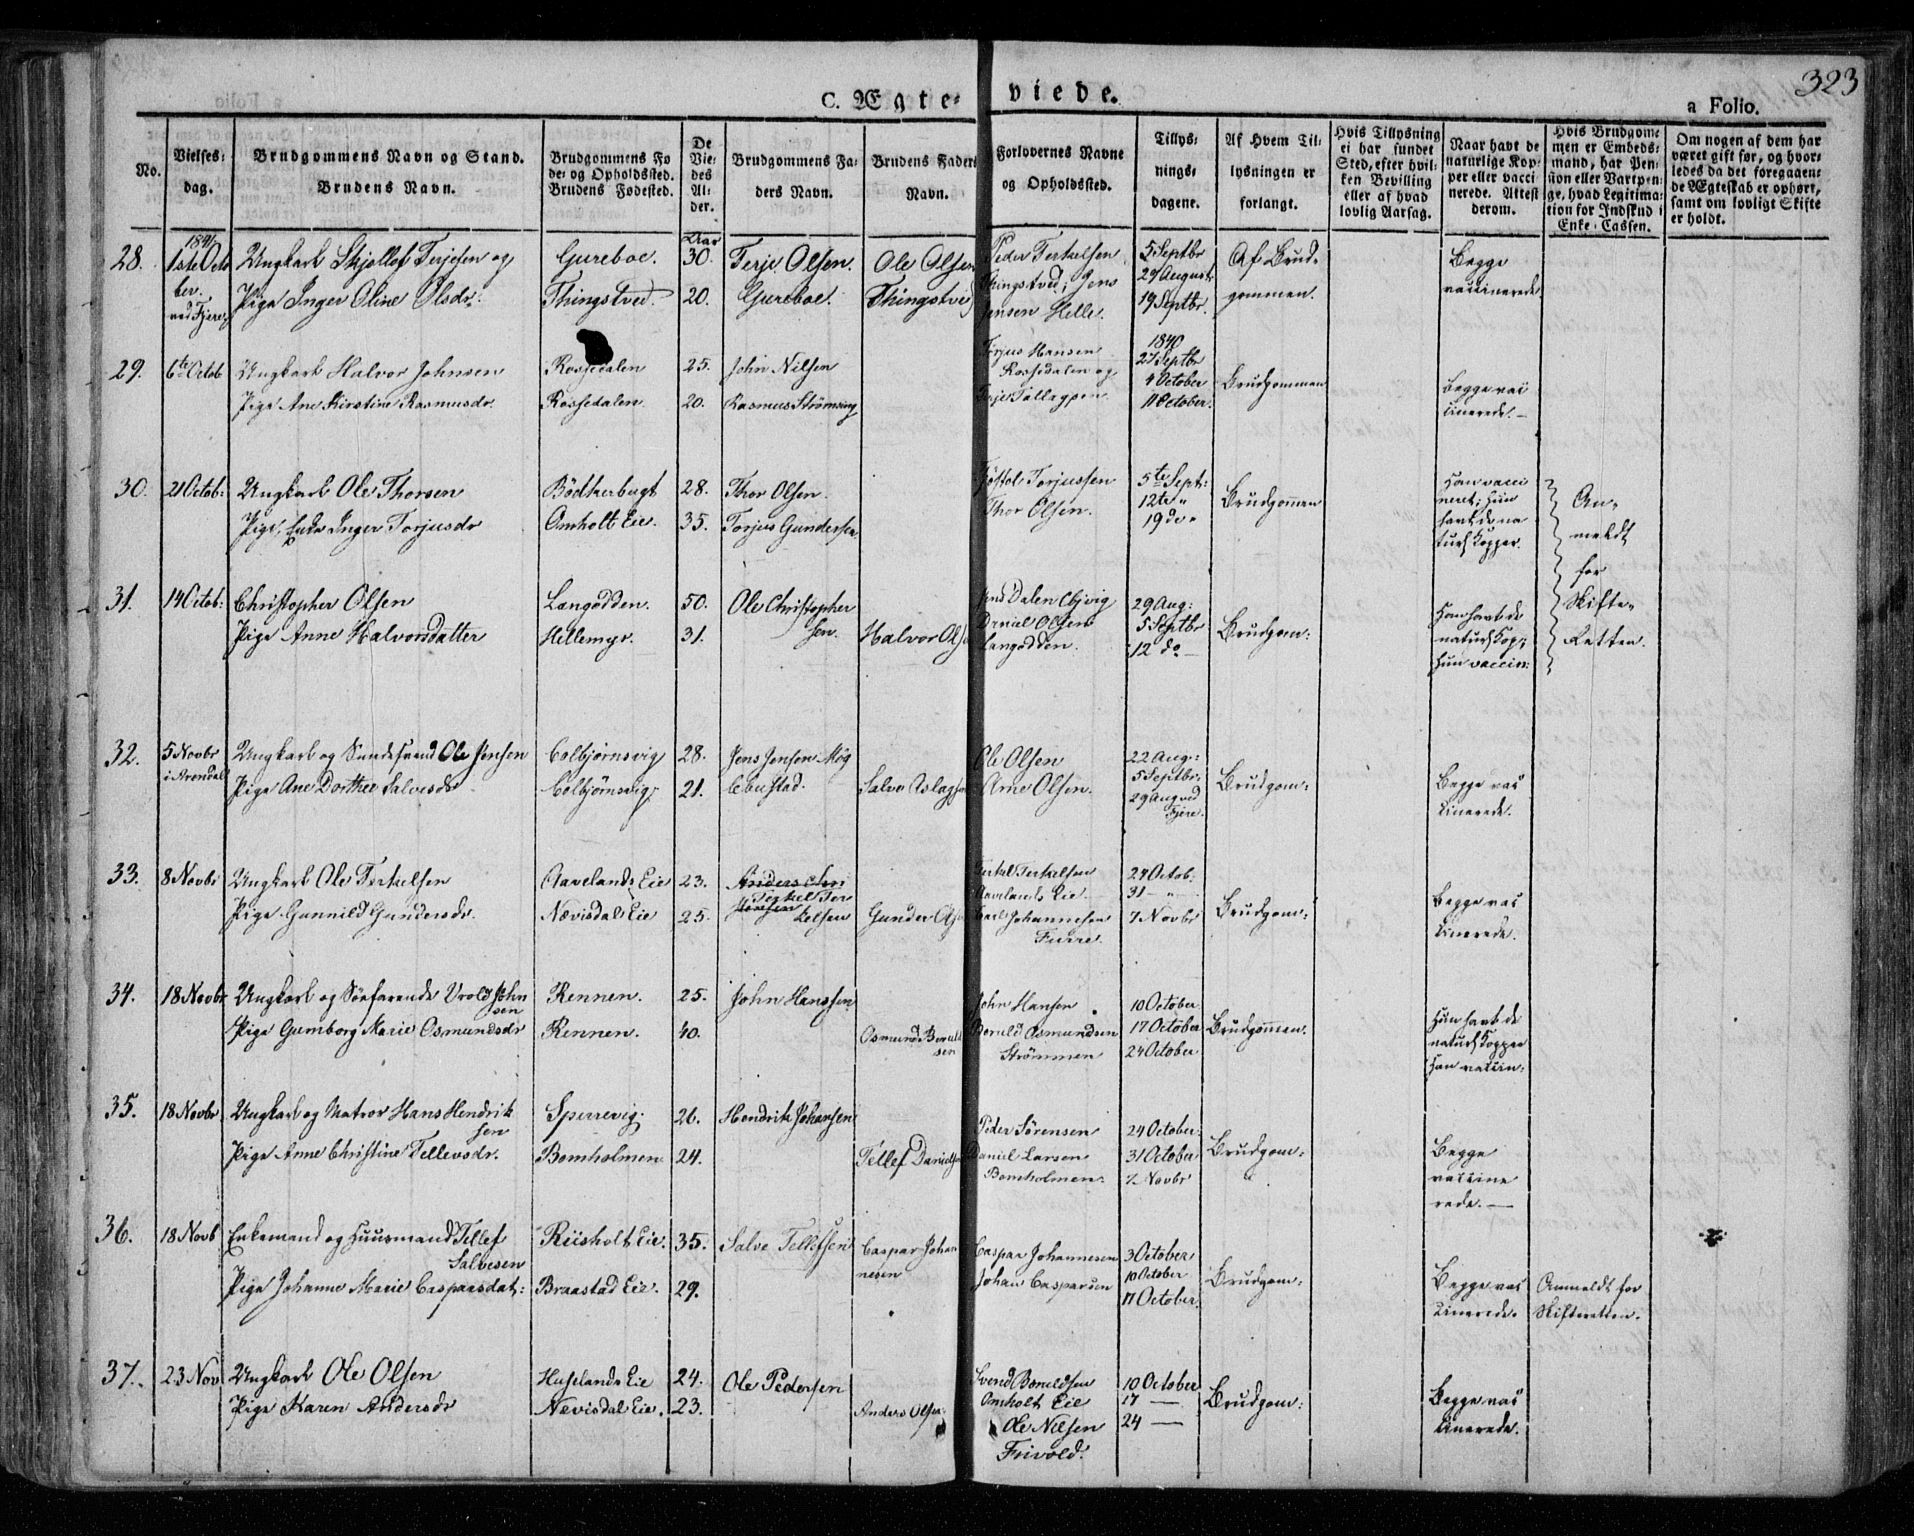 323
C. Ægte- viede.
a Folio.
No.
Vielses-
dag.
Brudgommens Navn og Stand.
Brudens Navn.
Brudgommens Fø
de- og Opholdssted.
Brudens Fødested.
De
Vie-
des
Al-
der.
Brudgommens Fa-
ders Navn.
Brudens Faders
Navn.
Forlovernes Navne
og Opholdssted.
Tillys-
nings-
dagene.
Af Hvem Til-
lysningen er
forlangt.
Hvis Tillysning
ei har fundet
Sted, efter hvil-
ken Bevilling
eller af hvad
lovlig Aarsag.
Naar havt de
naturlige Kop-
per eller vacci-
nerede. Attest
derom.
Hvis Brudgom-
men er Embeds-
mand, har Pen-
sion eller Vartpen-
ge, hvad Legitima-
tion for Indskud i
Enke-Cassen.
Om nogen af dem har
været gift før, og hvor-
ledes da det foregaaen-
de Ægteskab er ophørt,
samt om lovligt Skifte
er holdt.
28. 1841 1ste Octo
ber
ved Fjere
Ungkarl Skjellef Terjesen og
Pige Inger Oline Olsdr:
Gureboe.
Thingstved.
Aar
30.
20.
Terje Olsen.
Gureboe.
Ole Olsen
Thingstved
Peder Terkelsen
Thingstved, Jens
Jensen Helle.
5 Septbr
29 August
19 Septbr.
Af Brud-
gommen.
Begge
vaccinerede.
29. 6te Octob
Ungkarl Halvor Johnsen
Pige Ane Kirstine Rasmusdr.
Rossedalen
Rossedalen
25.
20.
John Nilsen
Rasmus Strømsing
Terjus Hansen
Rossedalen og
Terje
1840
27 Septbr
4 October
11 October.
Brudgommen
Begge vac
cinerede.
30. 21 Octob:
Ungkarl Ole Thorsen
Pige, Enke Inger Torjusdr
Bødkerbugt
Omholt Eie.
28.
35.
Thor Olsen.
Torjus Gundersen
Torjussen
Thor Olsen.
5te Sept:
12te "
19de "
Brudgommen
Han vacci
neret; Hun
havt de na
turl Kopper.
An-
meldt
for
Skifte-
Retten.
31. 14 Octob:
Christopher Olsen
Pige Anne Halvorsdatter
Langodden.
Hillemyr.
50.
31.
Ole Christopher
sen.
Halvor Olsen
Daniel Olsen
Langodden.
29 Aug:
5 Septbr
12 do
Brudgom:
Han havt de
naturl Kop:
Hun vaccin:
32. 5 Novbr
i Arendal
Ungkarl og Ole Jensen
Pige Ane Dorthee Salvesdr
Colbjørnsvig
Colbjørnsvig.
28.
21.
Jens Jensen
Salve Aslagsen
Ole Olsen
Arne Olsen.
22 Aug:
5 Septbr.
29 Aug ved
Fjere.
Brudgom:
Begge vac
cinerede.
33. 8 Novbr
Ungkarl Ole Terkelsen
Pige Gunnild Gundersdr.
Aavelands Eie
Nævisdal Eie
23.
25.
Terkel Ter
kelsen
Gunder Olsen
Terkel Terkelsen
Aavelands Eie.
Carl Johannesen
Furre.
24 Octob.
31 — "
7 Novbr
Brudgom:
Begge vac
cinerede.
34. 18 Novbr
Ungkarl og Søefarende Vrold John
sen
Pige Gumborg Marie Osmundsdr
Rennen.
Rennen.
25.
40.
John Hanssen
Osmund Beruld
sen
John Hansen
Beruld Osmundsen
Strømmen
10 October
17 October
24 October
Brudgommen.
Hun havt de
naturl Kopper
Han vaccin:
35. 18 Novbr
Ungkarl og Matros Hans Hendrik
sen
Pige Anne Christine Tellevsdr.
Sperrevig.
Bomholmen
26.
24.
Hendrik Johansen
Tellef Danielsen
Peder Sørensen
Daniel Larsen
Bomholmen.
24 October.
31 October
7 Novbr
Brudgom:
Begge
vaccine
rede. —
36. 18 Novb
Enkemand og Huusmand Tellef
Salvesen
Pige Johanne Marie Caspersdat:
Riisholt Eie.
Braastad Eie.
35.
29.
Salve Tellefsen
Caspar Johan
nesen
Caspar Johannesen
Johan Caspersen
3 October
10 October
17 October.
Brudgom:
Begge vac
cinerede.
Anmeldt for
Skifteretten.
37. 23 Nov
Ungkarl Ole Olsen
Pige Karen Andersdr
Huslands Eie
Nævisdal Eie.
24.
23.
Ole Pedersen
Anders Olsen
Svend Beruldsen
Omholt Eie
Ole Nilsen
Frivold.
10 October
17 —
24 —
Brudgom:
Begge vac
cinerede.